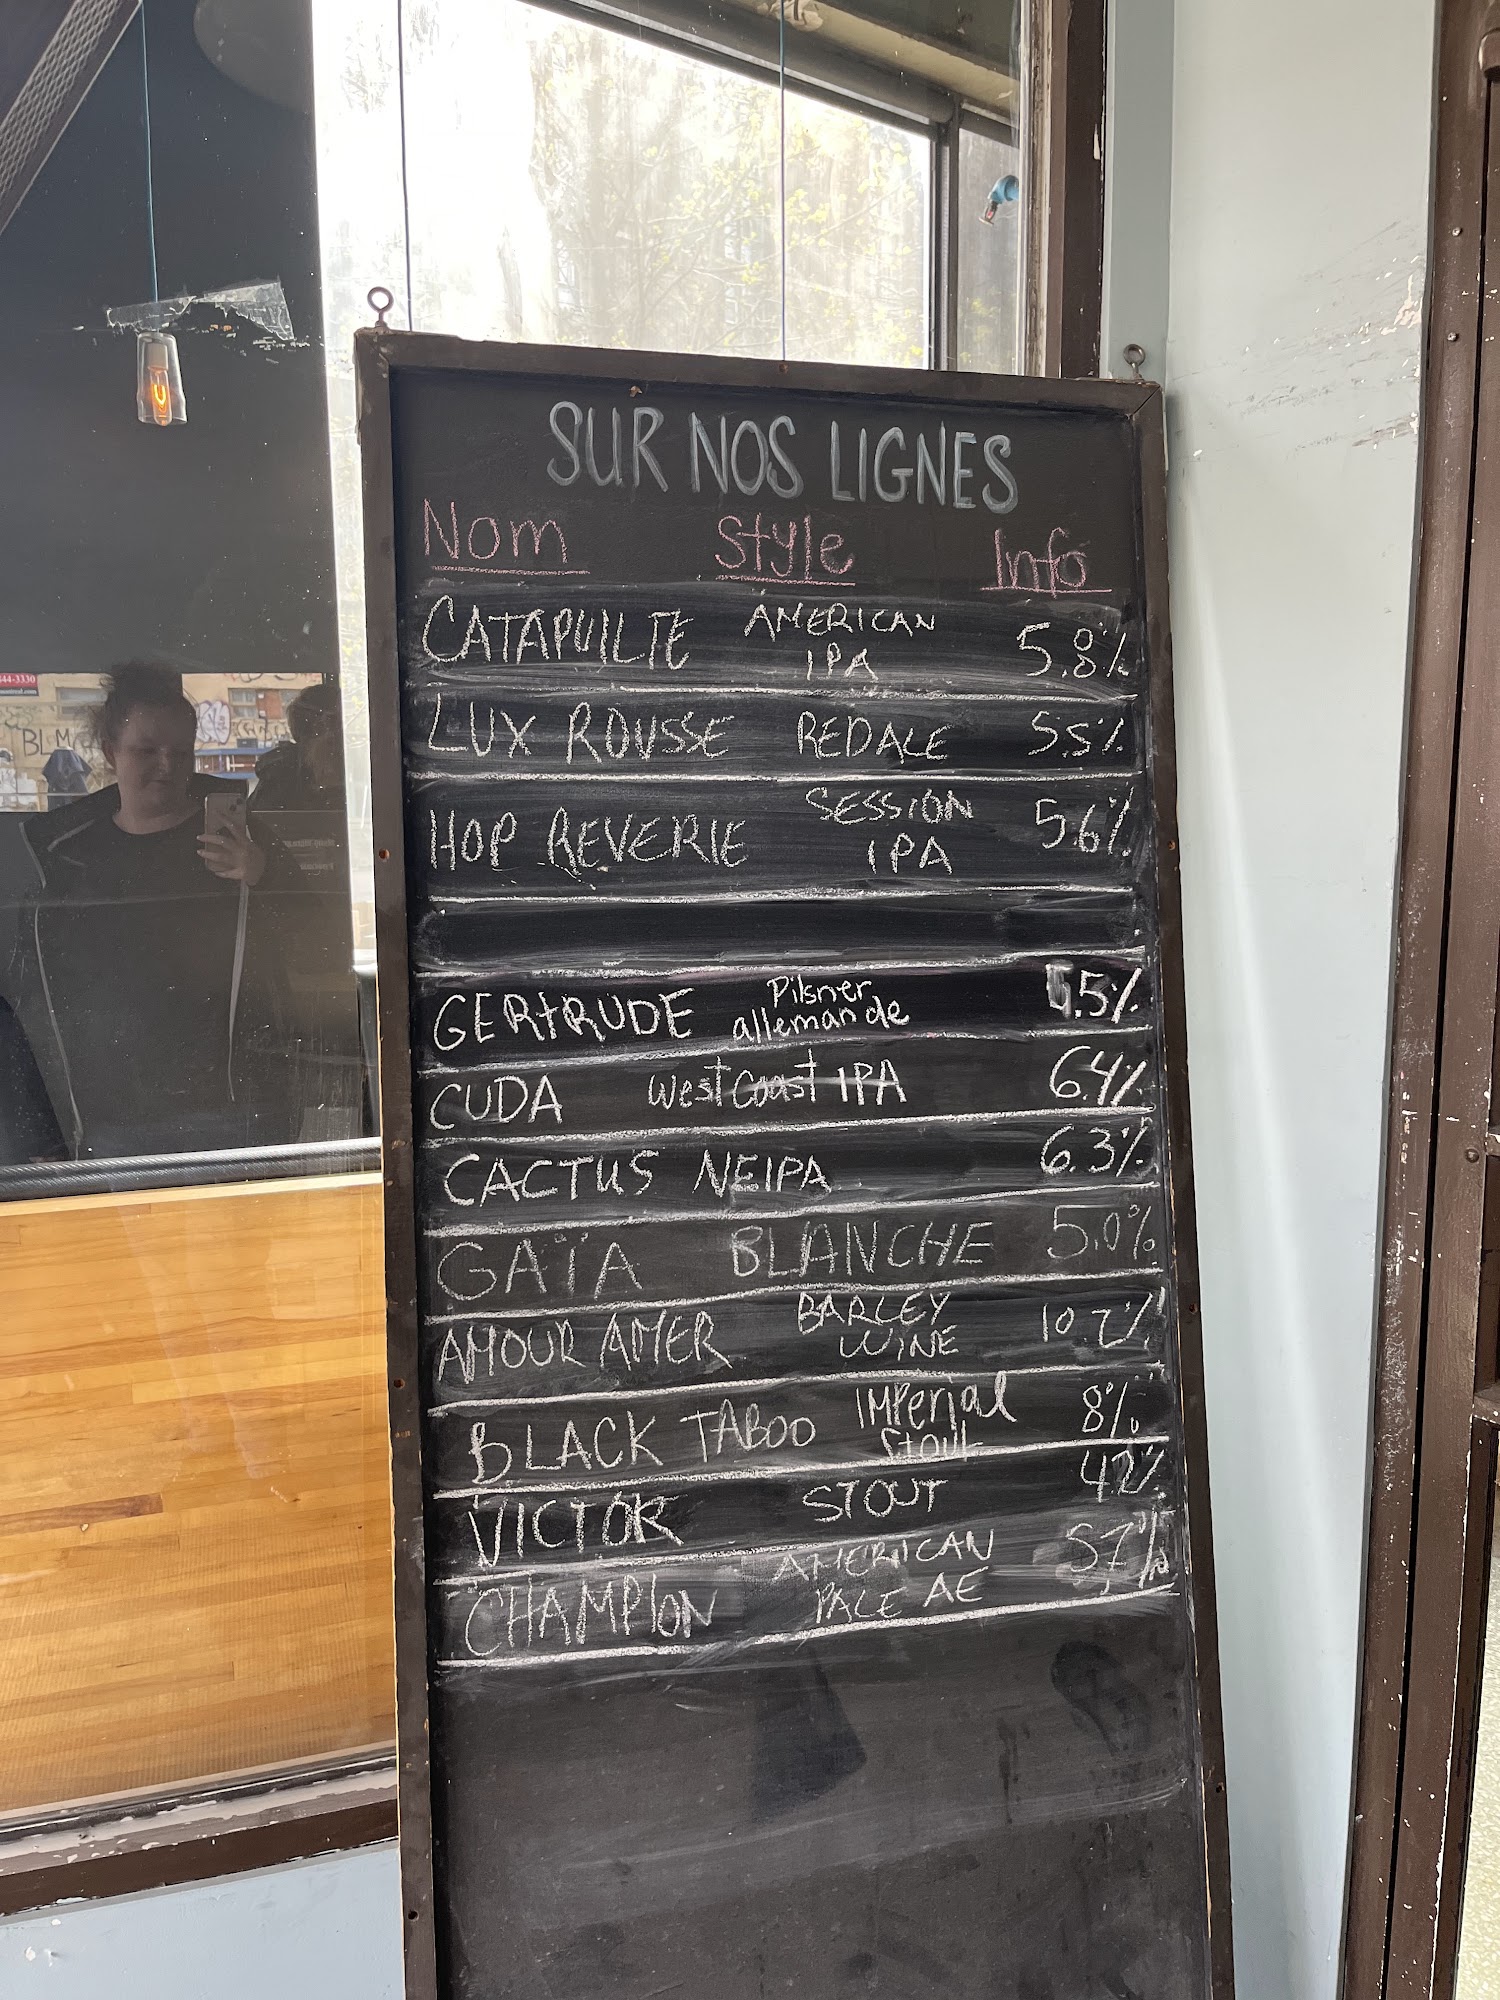 SUR NOS LIGNES
Nom Style Info
CATAPUILTE AMERICAN IPA 5,8%
LUX ROUSSE RED ALE 5.5%
HOP REVERIE SESSION IPA 5.6%
GERTRUDE Pilsner allemande 4.5%
CUDA West Coast IPA 6.4%
CACTUS NEIPA 6.3%
GAÏA BLANCHE 5.0%
AMOUR AMER BARLEY WINE 10.2%
BLACK TABOO IMPerial Stout 8%
VICTOR STOUT 4.2%
CHAMPION AMERICAN PALE AE 5,7%
44-3330
BLM